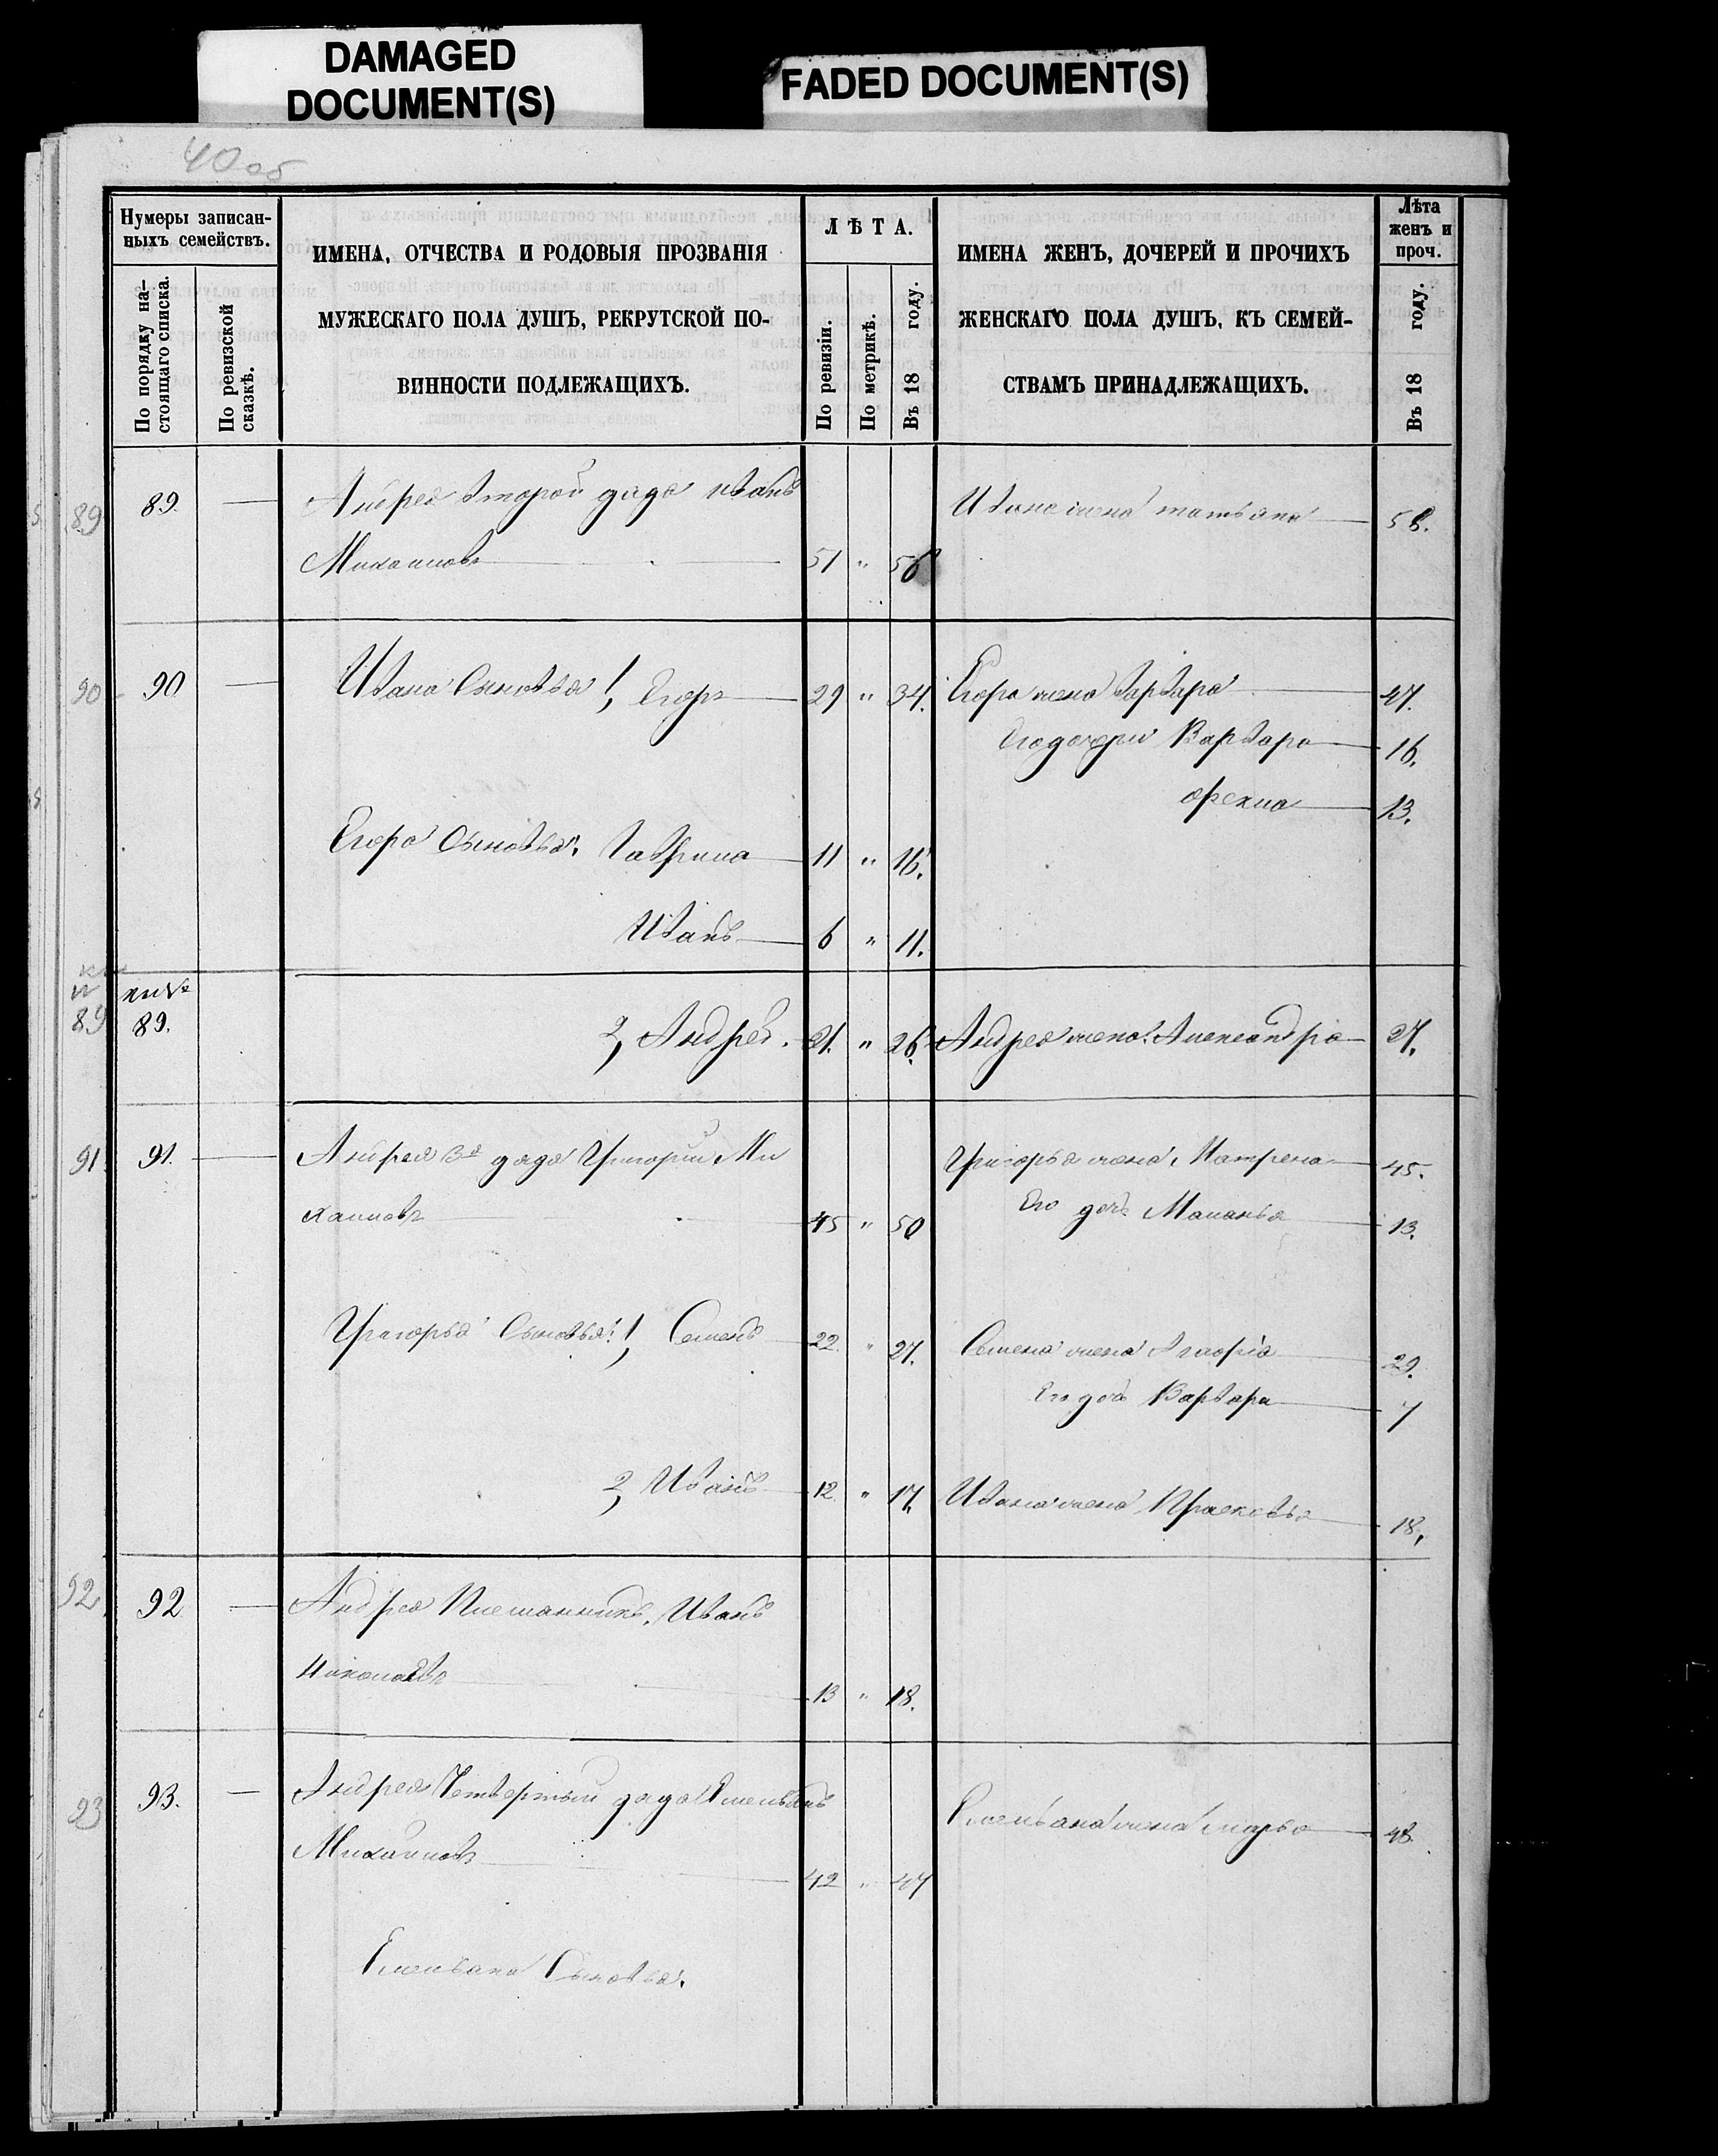 DAMAGED
DOCUMENT(S)
FADED DOCUMENT(S)
40 об
Нумеры записан-
ныхъ семействъ.
По порядку на-
стоящаго списка.
По ревизской
сказкѣ.
ИМЕНА, ОТЧЕСТВА И РОДОВЫЯ ПРОЗВАНІЯ
МУЖЕСКАГО ПОЛА ДУШЪ, РЕКРУТСКОЙ ПО-
ВИННОСТИ ПОДЛЕЖАЩИХЪ.
ЛѢТА.
По ревизіи.
По метрикѣ.
Въ 18 году.
ИМЕНА ЖЕНЪ, ДОЧЕРЕЙ И ПРОЧИХЪ
ЖЕНСКАГО ПОЛА ДУШЪ, КЪ СЕМЕЙ-
СТВАМЪ ПРИНАДЛЕЖАЩИХЪ.
Лѣта
женъ и
проч.
Въ 18 году.
89 89. — Андрея второй дядя иванъ
Ивана жена татьяна — 58.
Михаиловъ — 51 " 56
90 90 — Ивана Сыновья 1, Егоръ — 29 " 34. Егора жена варвара — 47.
Его дочери Варвара — 16.
офимиа — 13.
Егора Сыновья. Гаврила — 11 " 16.
Иванъ — 6 " 11.
89 89.
2, Андрей. 21. " 26. Андрея жена Александра — 27.
91. 91. — Андрея 3й дядя Григорій Ми
Григорья жена, Матрена — 45.
хаиловъ — 45 " 50
Его дочь Маланья — 13.
Григорья Сыновья: 1, Семенъ 22. " 27. Семена жена — 29.
Его дочь Варвара — 7
2, Иванъ 12. " 17. Ивана жена Прасковья — 18.
92. 92 — Андрея Племянникъ, Иванъ
Николаевъ — 13 " 18.
93 93. — Андрея Четвертый дядя Емельянъ
Емельяна жена марья — 48.
Михаиловъ — 42 " 47
Емельяна Сыновья.